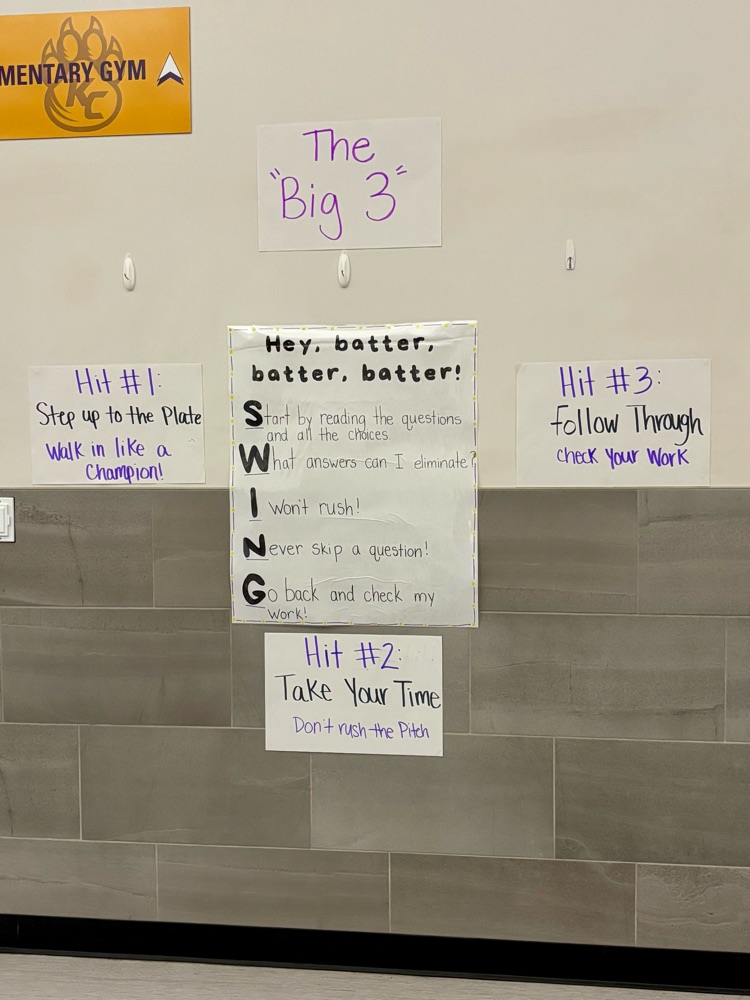 MENTARY GYM
KC
The
"Big 3"
Hey, batter,
batter, batter!
Start by reading the questions
and all the choices.
What answers can I eliminate?
I won't rush!
Never skip a question!
Go back and check my
work!
Hit #1:
Step up to the Plate
Walk in like a
Champion!
Hit #2:
Take Your Time
Don't rush the Pitch
Hit #3:
Follow Through
Check Your Work